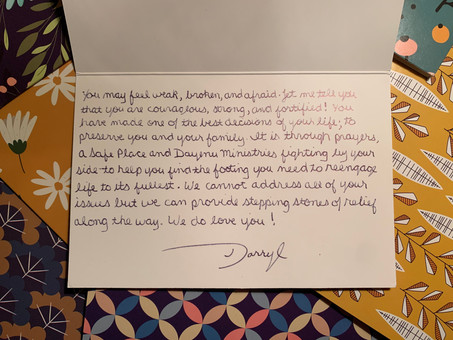 You may feel weak, broken, and afraid. Let me tell you
that you are courageous, strong, and fortified! You
have made one of the best decisions of your life; to
preserve you and your family. It is through prayers,
a Safe Place and Dayenu Ministries fighting by your
side to help you find the footing you need to reengage
life to its fullest. We cannot address all of your
issues but we can provide stepping stones of relief
along the way. We do love you!
Darryl